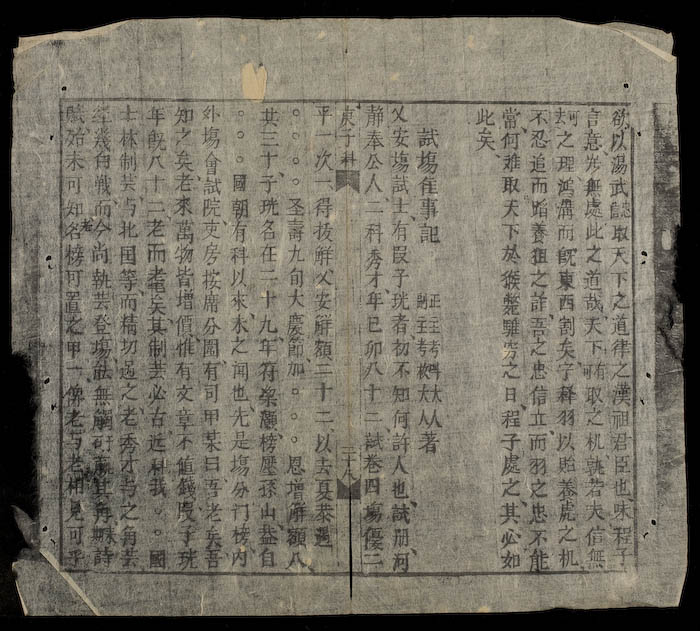 欲以湯武䛊取天下之道律之漢祖君臣也味程子
言意必無處此之道哉天下有可取之机孰若夫信無
之理鴻溝而旣東西割矣字釋羽以貽養虎之机
不忍追而貽養狙之詐吾之忠信立而羽之忠不能
當何難取天下於猴斃騅旁之日程子處之其必如
此矣
試塲隹事記
正主考大人
副主考大人著
乂安塲試士有叚子珖者初不知何許人也試册河
静奉公人二科秀才年巳卯八十二試卷四塲優二
平一次一得抜解乂安解額二十二以去夏恭遇
聖壽九旬大慶節加恩增解額八
共三十子珖名在二十九年符梁灝榜壓孫山益自
國朝有科以來未之聞也先是塲分门榜内
外塲會試院吏房按席分圈有可甲某曰吾老矣吾
知之矣老來萬物皆增價惟有文章不值錢叚子珖
年旣八十二老而耄矣其制芸必古近科我國
士林制芸与北国等而精切過之老秀才与之角芸
經幾白戰而今尚執芸登塲
賦始未可知名榜可置之甲一俾老与老相見可乎
庚子科
二十八